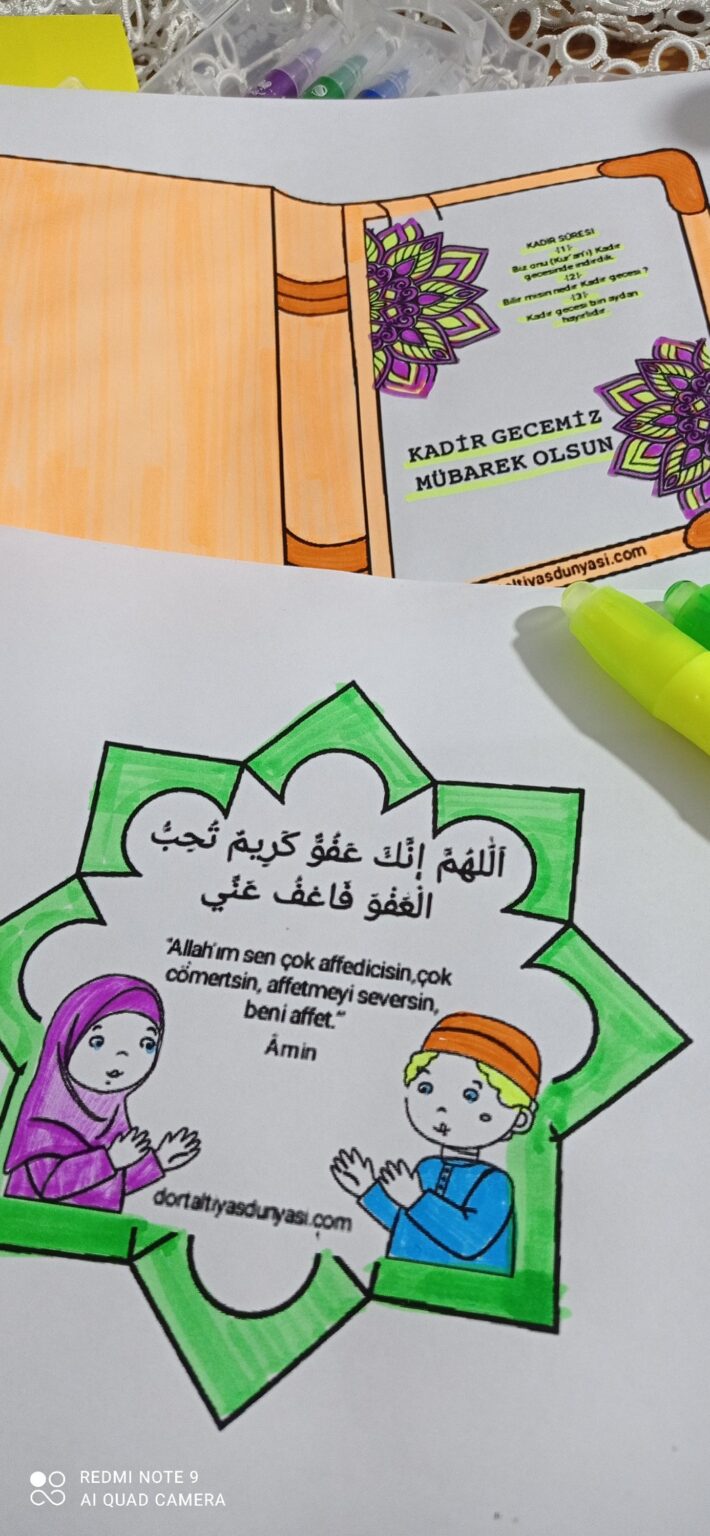 KADİR SÛRESİ
-(1)-
Biz onu (Kur'an'ı) Kadir
gecesinde indirdik.
-(2)-
Bilir misin nedir Kadir gecesi ?
-(3)-
Kadir gecesi bin aydan
hayırlıdır.
KADİR GECEMİZ
MÜBAREK OLSUN
altiyasdunyasi.com
اَللّٰهُمَّ إِنَّكَ عَفُوٌّ كَرِيمٌ تُحِبُّ
الْعَفْوَ فَاعْفُ عَنِّي
"Allah'ım sen çok affedicisin,çok
cömertsin, affetmeyi seversin,
beni affet."
Âmin
dortaltiyasdunyasi.com
REDMI NOTE 9
AI QUAD CAMERA